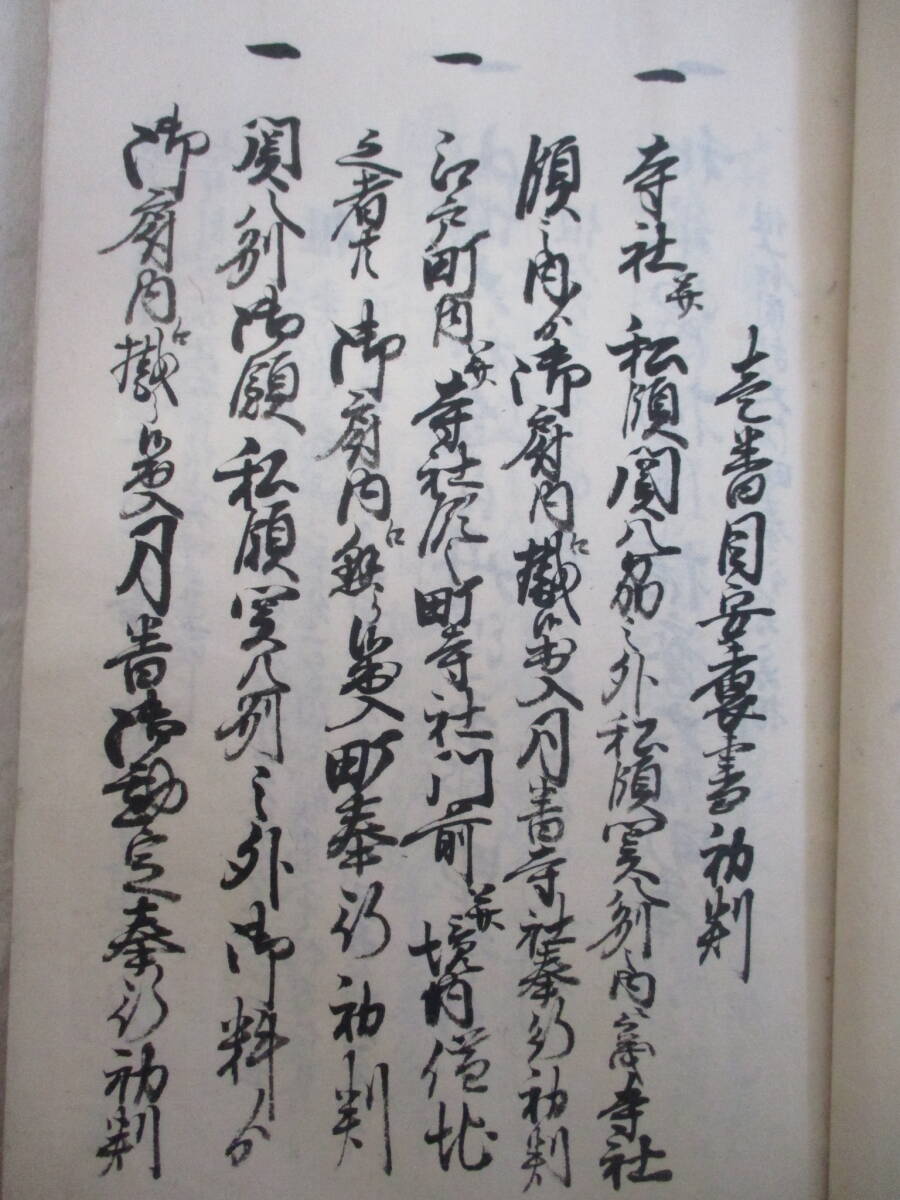 壱番目安裏書初判
一 寺社并私領関八州之外私領関八州内寺社
領之内ゟ御府内江掛候出入月番寺社奉行初判
一 江戸町内并寺社領之町寺社門前并境内借地
之者共御府内江懸り候出入町奉行初判
一 関八州御領私領関八州之外御料ゟ
御府内江掛り候出入月番御勘定奉行初判